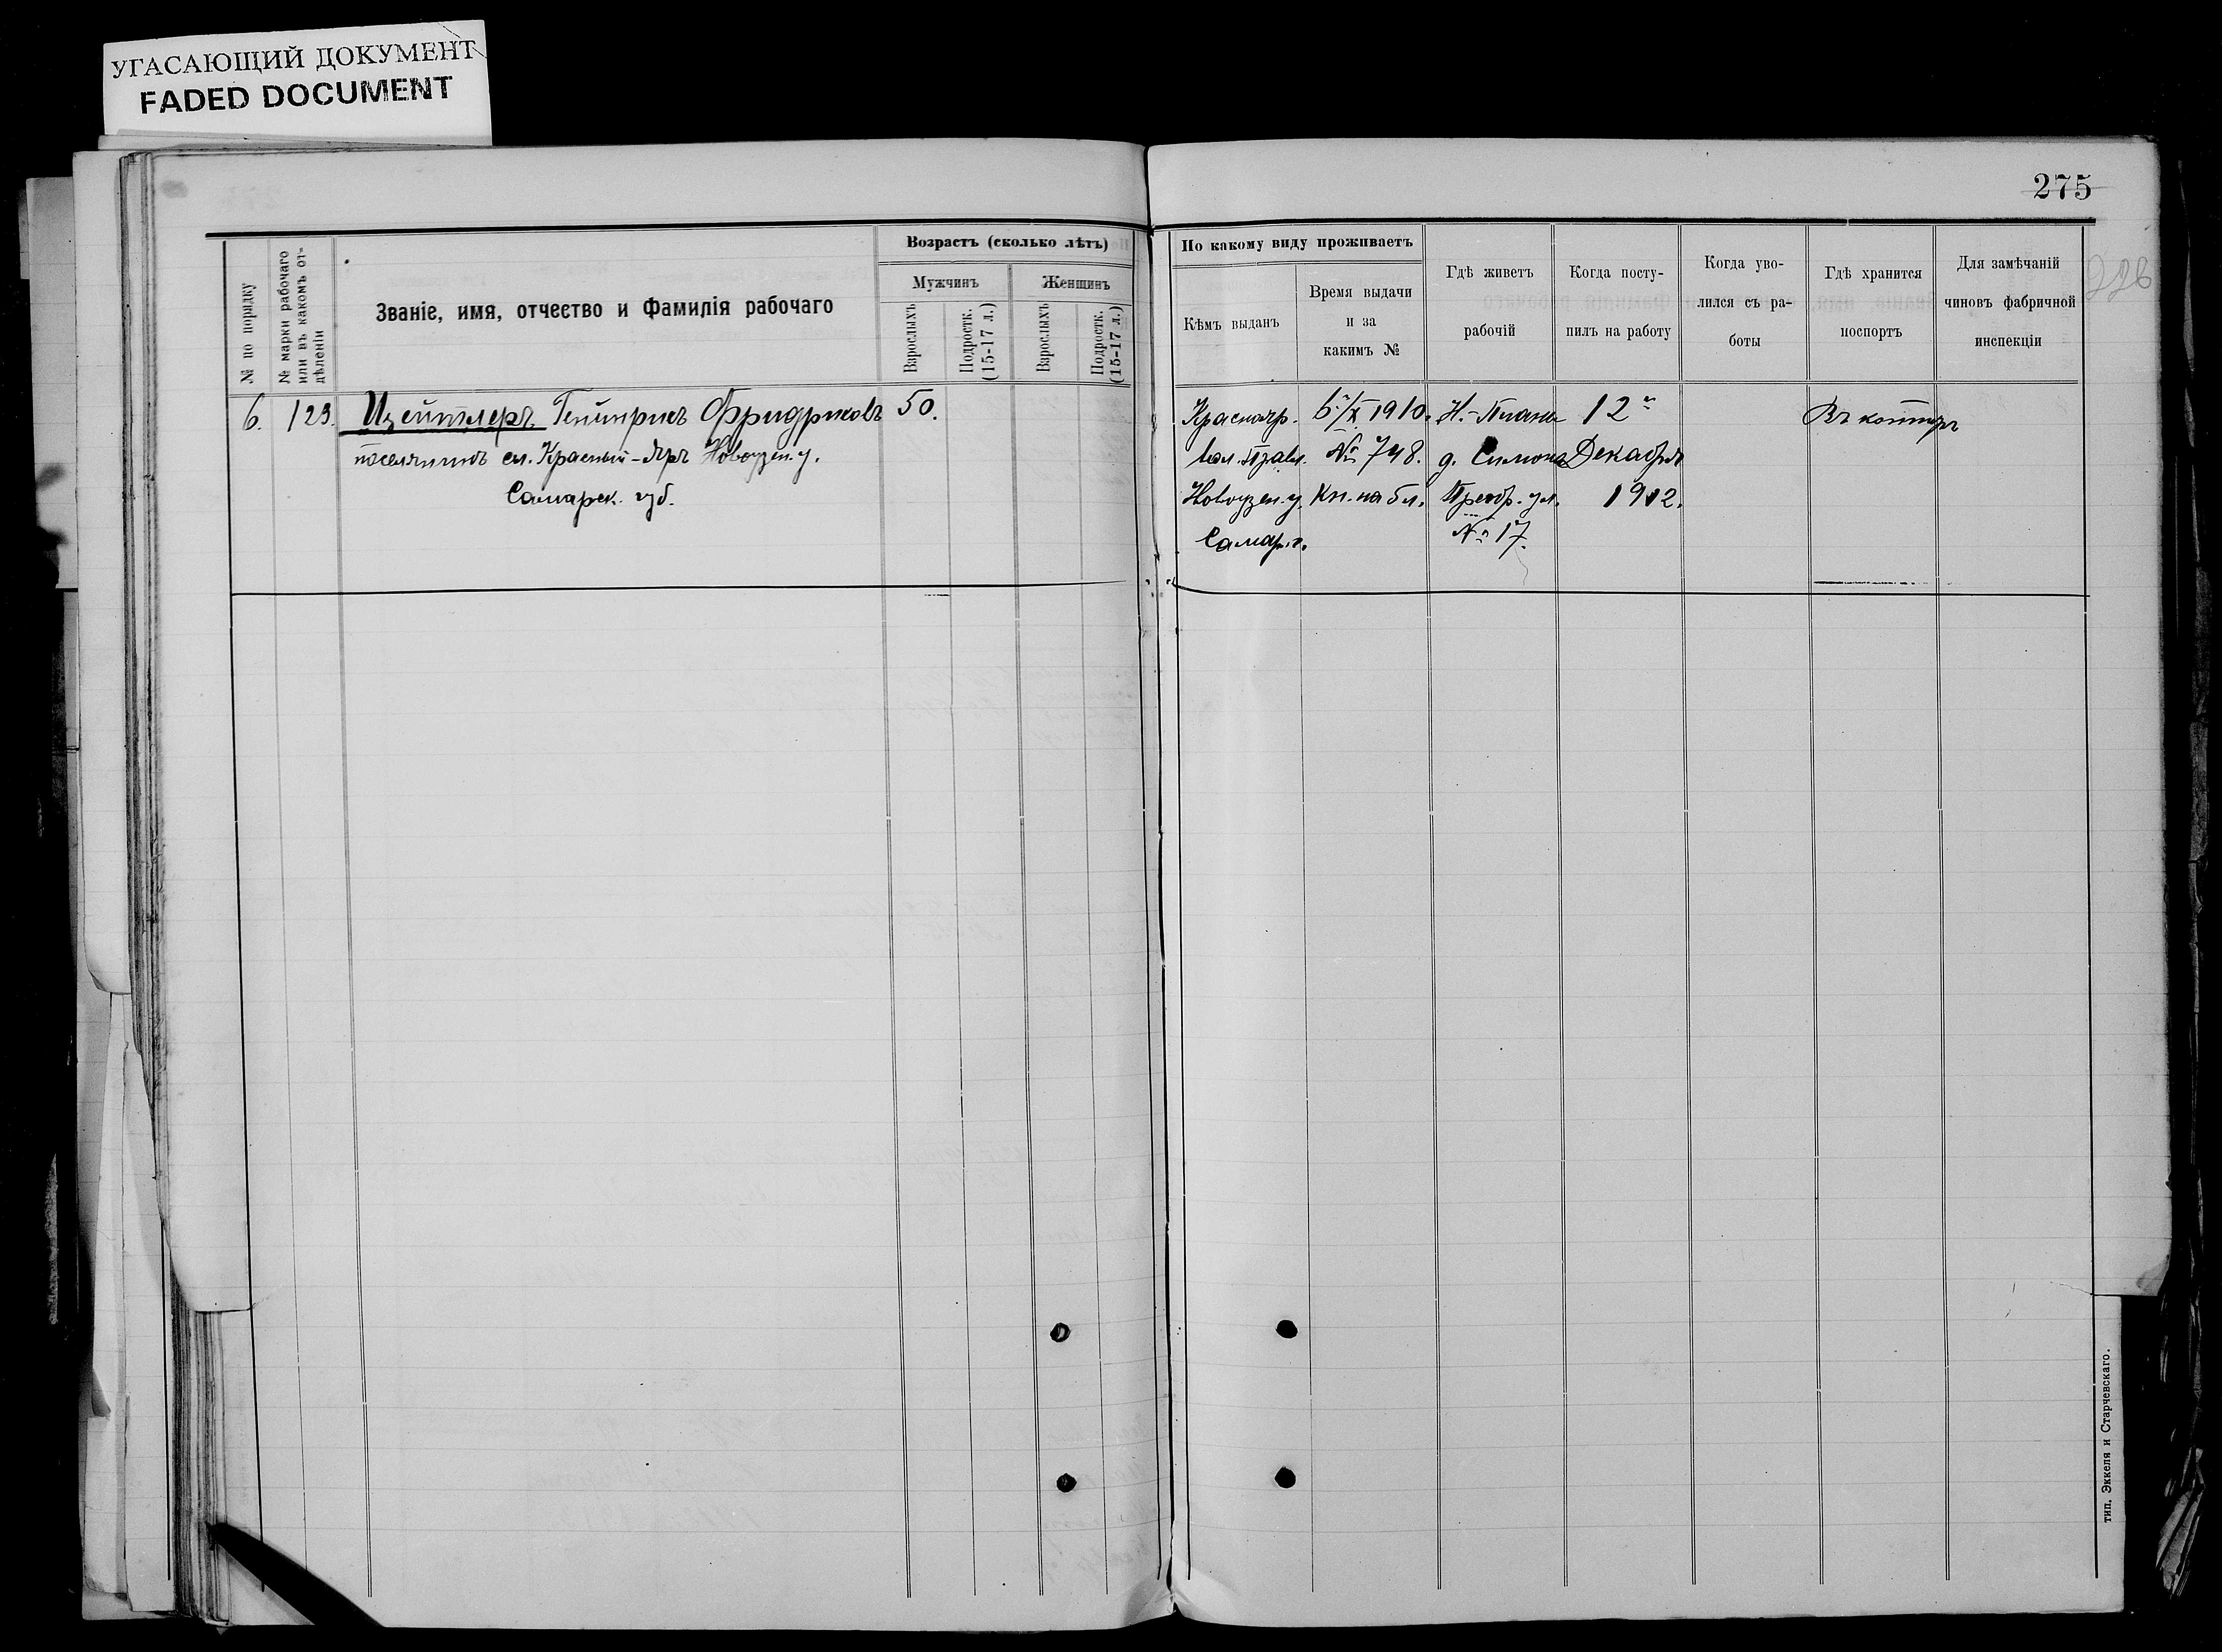 УГАСАЮЩИЙ ДОКУМЕНТ
FADED DOCUMENT
275
226
№ по порядку
№ марки рабочаго
или въ какомъ от-
дѣленіи
Званіе, имя, отчество и фамилія рабочаго
Возрастъ (сколько лѣтъ)
Мужчинъ
Женщинъ
Взрослыхъ
Подростк.
(15-17 л.)
Взрослыхъ
Подростк.
(15-17 л.)
По какому виду проживаетъ
Кѣмъ выданъ
Время выдачи
и за
какимъ №
Гдѣ живетъ
рабочій
Когда посту-
пилъ на работу
Когда уво-
лился съ ра-
боты
Гдѣ хранится
поспортъ
Для замѣчаній
чиновъ фабричной
инспекціи
6.
123.
Цейтлеръ Гейнрихъ Фридриховъ
поселянинъ сл. Красный-Яръ Новоузен. у.
Самарск. губ.
50.
Краснояр.
вол.
Новоузен. у.
Самарск.
6/X 1910.
№ 748.
Кн. на 5 л.
д. Симона
№ 17.
12
Декабря
1912.
Въ контор
тип. Эккеля и Старчевскаго.